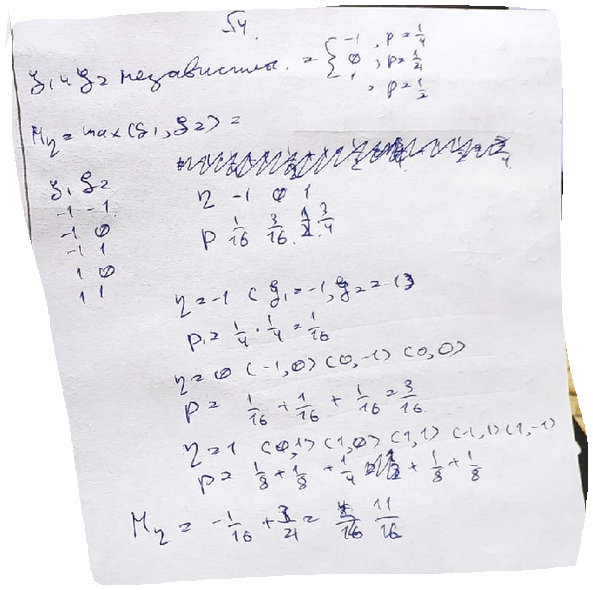 √4.
ξ₁ и ξ₂ независимы. = { -1, p = 1/4
0, p = 1/4
1, p = 1/2
Mη = max(ξ₁, ξ₂) =
ξ₁ ξ₂
-1 -1
-1 0
-1 1
1 0
1 1
η -1 0 1
p 1/16 3/16 3/4
η = -1 (ξ₁ = -1, ξ₂ = -1)
p = 1/4 · 1/4 = 1/16
η = 0 (-1, 0) (0, -1) (0, 0)
p = 1/16 + 1/16 + 1/16 = 3/16.
η = 1 (0, 1) (1, 0) (1, 1) (-1, 1) (1, -1)
p = 1/8 + 1/8 + 1/4 + 1/8 + 1/8
Mη = -1/16 + 3/4 = 11/16